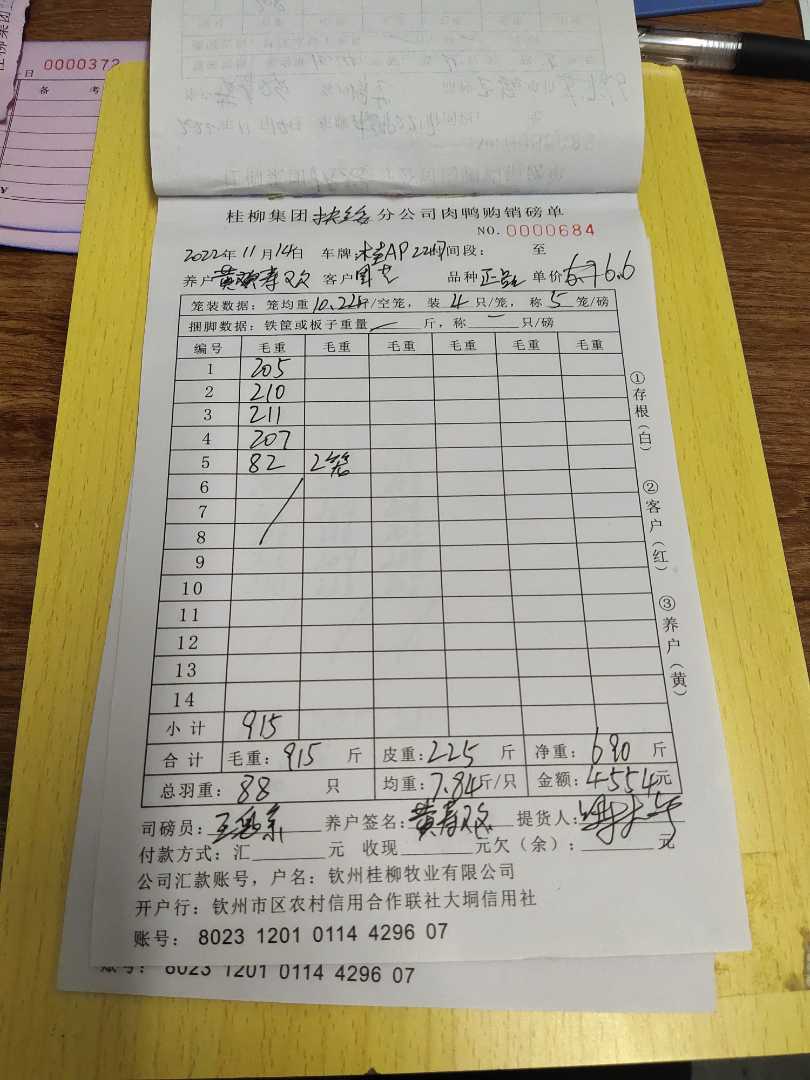 0000372
日
备 考
桂柳集团 扶绥 分公司肉鸭购销磅单
NO. 0000684
2022年 11月 14日 车牌: 时间段: 至
养户 客户 品种 正品 单价 6.6
笼装数据: 笼均重 10.22斤/空笼, 装 4 只/笼, 称 5 笼/磅
捆脚数据: 铁筐或板子重量 — 斤, 称 — 只/磅
编号 毛重 毛重 毛重 毛重 毛重 毛重
1 205
2 210
3 211
4 207
5 82 2笼
6
7
8
9
10
11
12
13
14
小计 915
合计 毛重: 915 斤 皮重: 225 斤 净重: 690 斤
总羽重: 88 只 均重: 7.84斤/只 金额: 4554元
①存根(白)
②客户(红)
③养户(黄)
司磅员: 养户签名: 提货人:
付款方式: 汇 元 收现 元欠(余): 元
公司汇款账号, 户名: 钦州桂柳牧业有限公司
开户行: 钦州市区农村信用合作联社大垌信用社
账号: 8023 1201 0114 4296 07
账号: 8023 1201 0114 4296 07